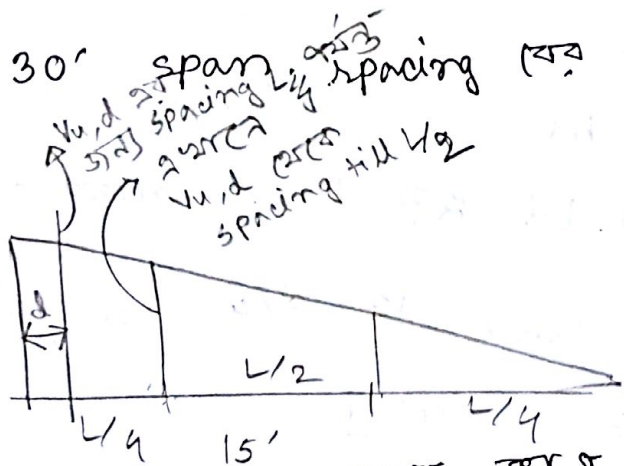 30' span spacing বের
Vu,d এর
জন্য spacing L/4 পর্যন্ত
এখানে
Vu,d থেকে
spacing till L/2
d
L/2
L/4
15'
L/4